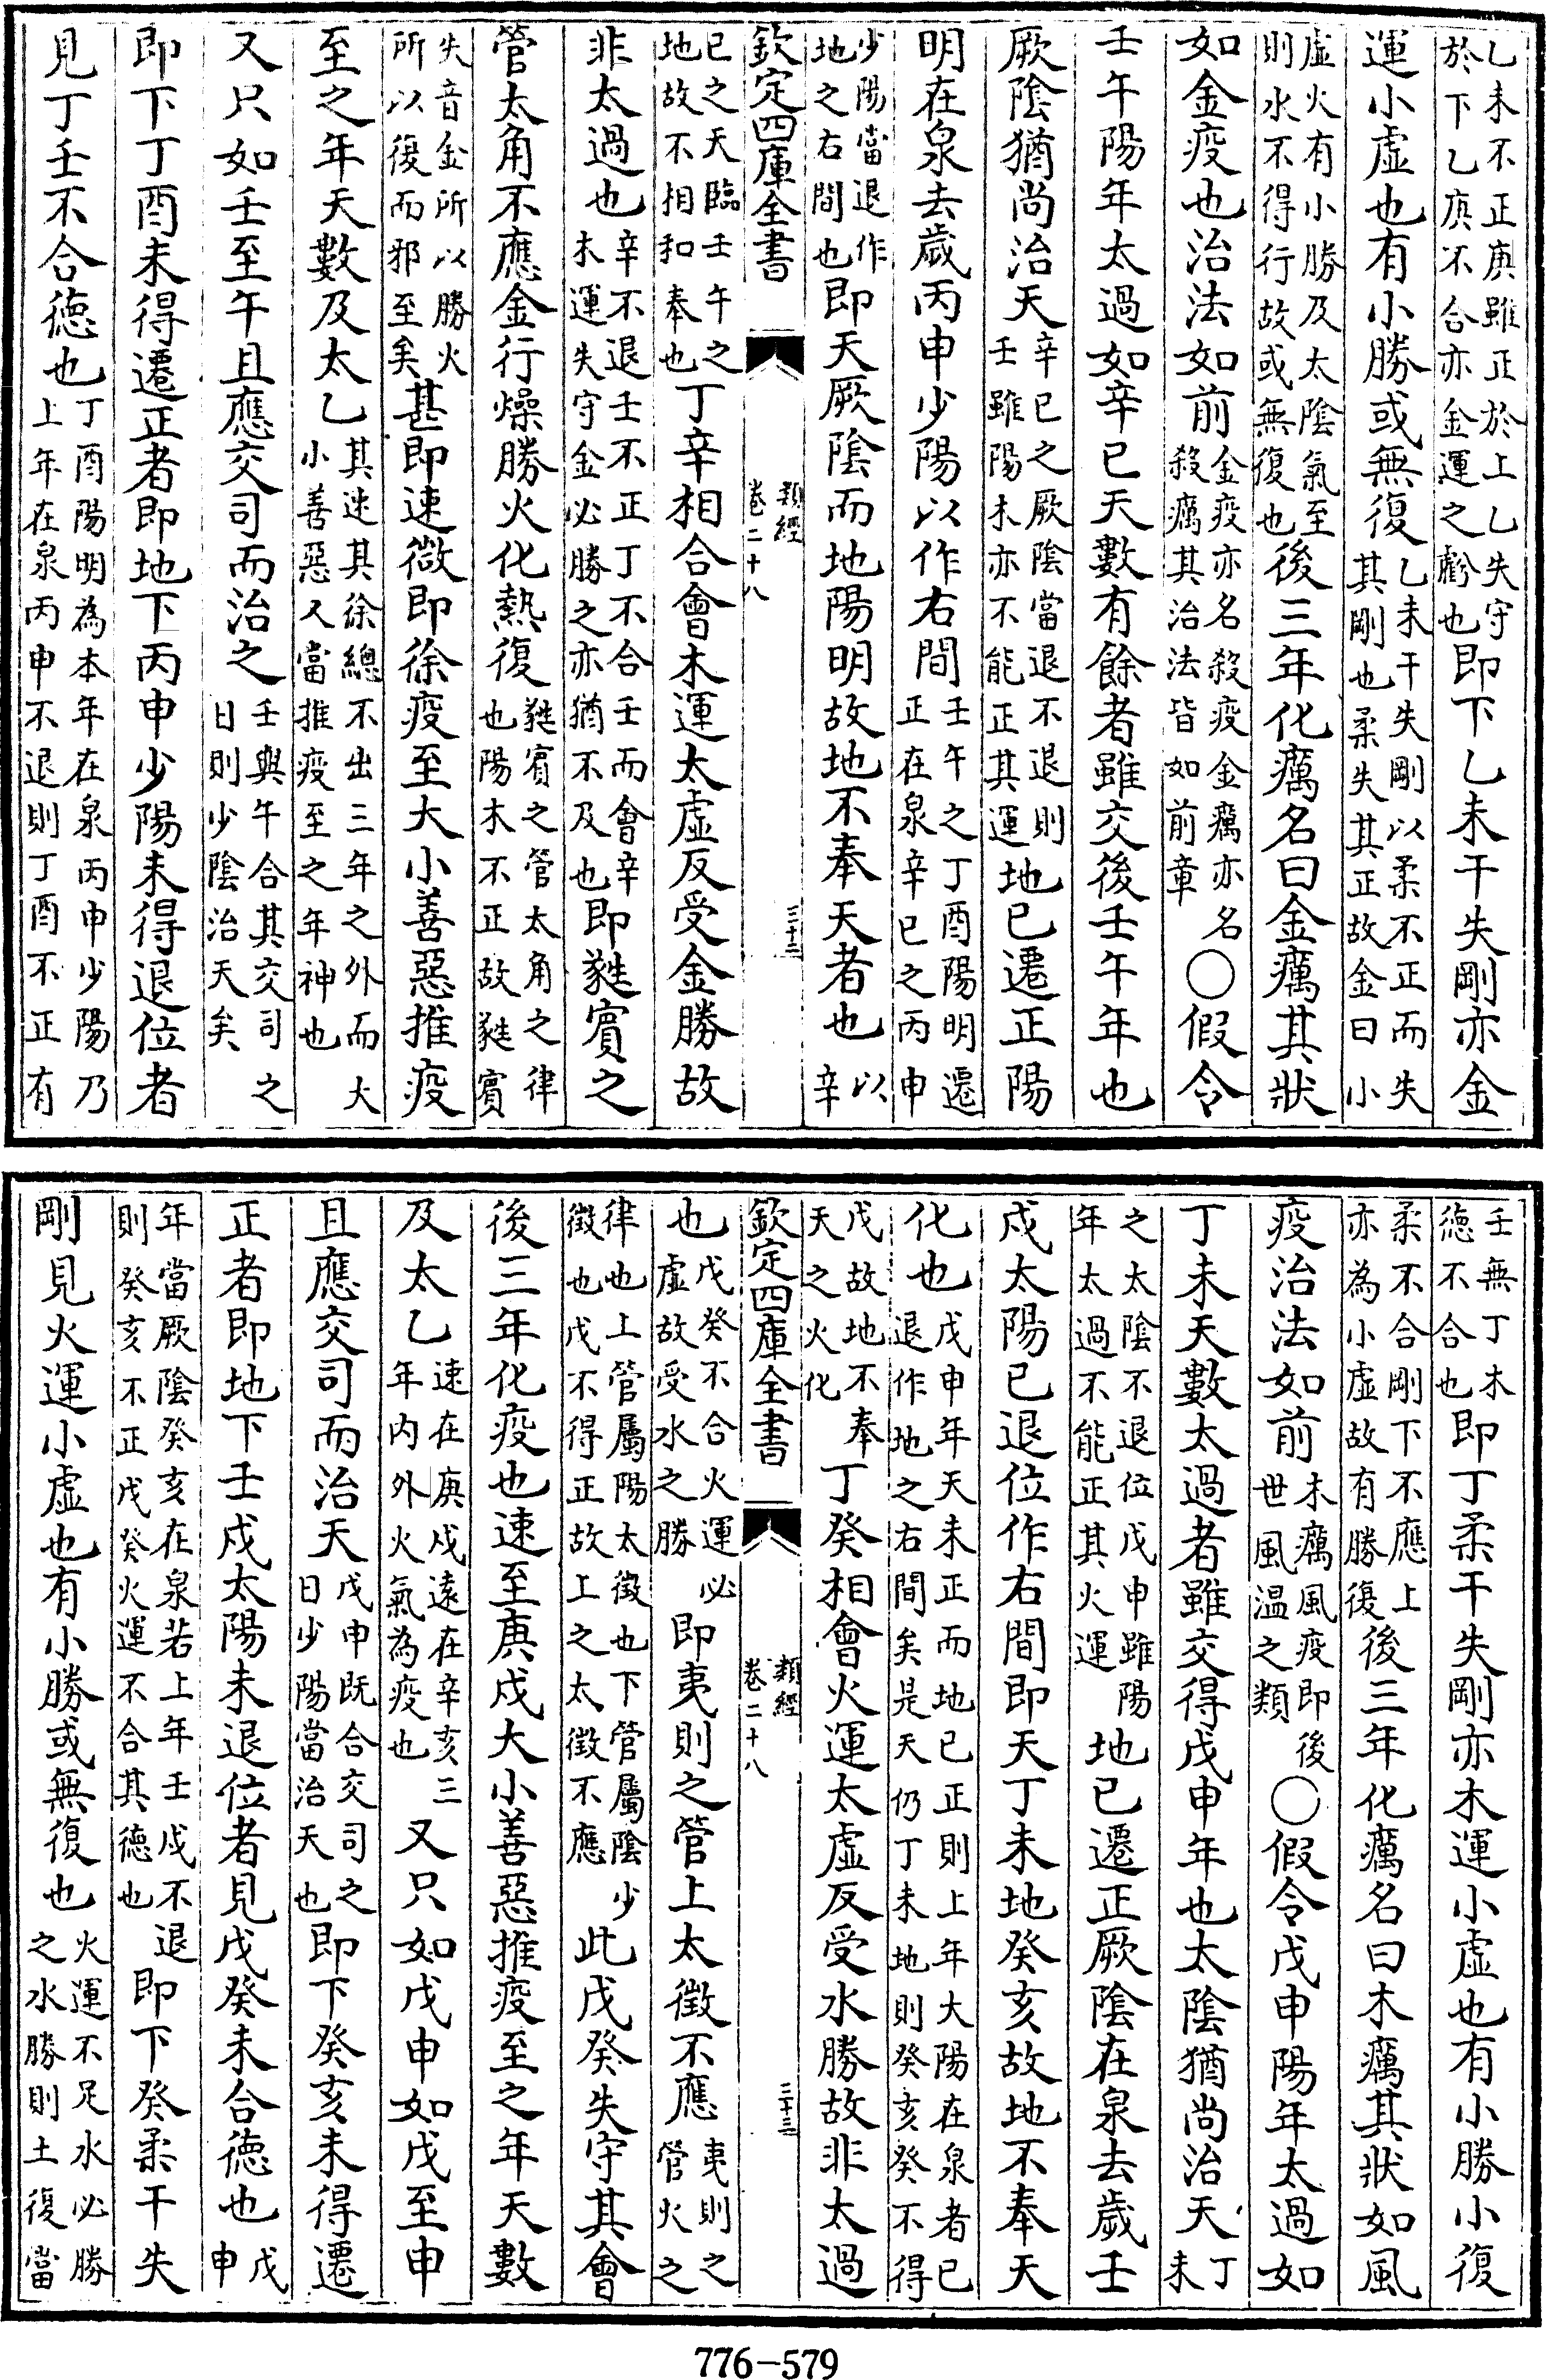 乙未不正庚雖正於上乙失守
於下乙庚不合亦金運之虧也
即下乙未干失剛亦金
運小虛也有小勝或無復
乙未干失剛以柔不正而失
其剛也柔失其正故金曰小
虛火有小勝及太陰氣至
則水不得行故或無復也
後三年化癘名曰金癘其狀
如金疫也治法如前
金疫亦名殺疫金癘亦名
殺癘其治法皆如前章
○假令
壬午陽年太過如辛巳天數有餘者雖交後壬午年也
厥陰猶尚治天
辛巳之厥陰當退不退則
壬雖陽木亦不能正其運
地已遷正陽
明在泉去歲丙申少陽以作右間
壬午之丁酉陽明遷
正在泉辛巳之丙申
少陽當退作
地之右間也
即天厥陰而地陽明故地不奉天者也
以
辛
欽定四庫全書
類經
卷二十八
三十二
巳之天臨壬午之
地故不相和奉也
丁辛相合會木運太虛反受金勝故
非太過也
辛不退壬不正丁不合壬而會辛
木運失守金必勝之亦猶不及也
即蕤賓之
管太角不應金行燥勝火化熱復
蕤賓之管太角之律
也陽木不正故蕤賓
失音金所以勝火
所以復而邪至矣
甚即速微即徐疫至大小善惡推疫
至之年天數及太乙
其速其徐總不出三年之外而大
小善惡又當推疫至之年神也
又只如壬至午且應交司而治之
壬與午合其交司之
日則少陰治天矣
即下丁酉未得遷正者即地下丙申少陽未得退位者
見丁壬不合德也
丁酉陽明為本年在泉丙申少陽乃
上年在泉丙申不退則丁酉不正有
壬無丁木
德不合也
即丁柔干失剛亦木運小虛也有小勝小復
柔不合剛下不應上
亦為小虛故有勝復
後三年化癘名曰木癘其狀如風
疫治法如前
木癘風疫即後
世風溫之類
○假令戊申陽年太過如
丁未天數太過者雖交得戊申年也太陰猶尚治天
丁
未
之太陰不退位戊申雖陽
年太過不能正其火運
地已遷正厥陰在泉去歲壬
戌太陽已退位作右間即天丁未地癸亥故地不奉天
化也
戊申年天未正而地已正則上年太陽在泉者已
退作地之右間矣是天仍丁未地則癸亥癸不得
戊故地不奉
天之火化
丁癸相會火運太虛反受水勝故非太過
欽定四庫全書
類經
卷二十八
三十三
也
戊癸不合火運必
虛故受水之勝
即夷則之管上太徵不應
夷則之
管火之
律也上管屬陽太徵也下管屬陰少
徵也戊不得正故上之太徵不應
此戊癸失守其會
後三年化疫也速至庚戌大小善惡推疫至之年天數
及太乙
速在庚戌遠在辛亥三
年內外火氣為疫也
又只如戊申如戊至申
且應交司而治天
戊申既合交司之
日少陽當治天也
即下癸亥未得遷
正者即地下壬戌太陽未退位者見戊癸未合德也
戊
申
年當厥陰癸亥在泉若上年壬戌不退
則癸亥不正戊癸火運不合其德也
即下癸柔干失
剛見火運小虛也有小勝或無復也
火運不足水必勝
之水勝則土復當
776-579